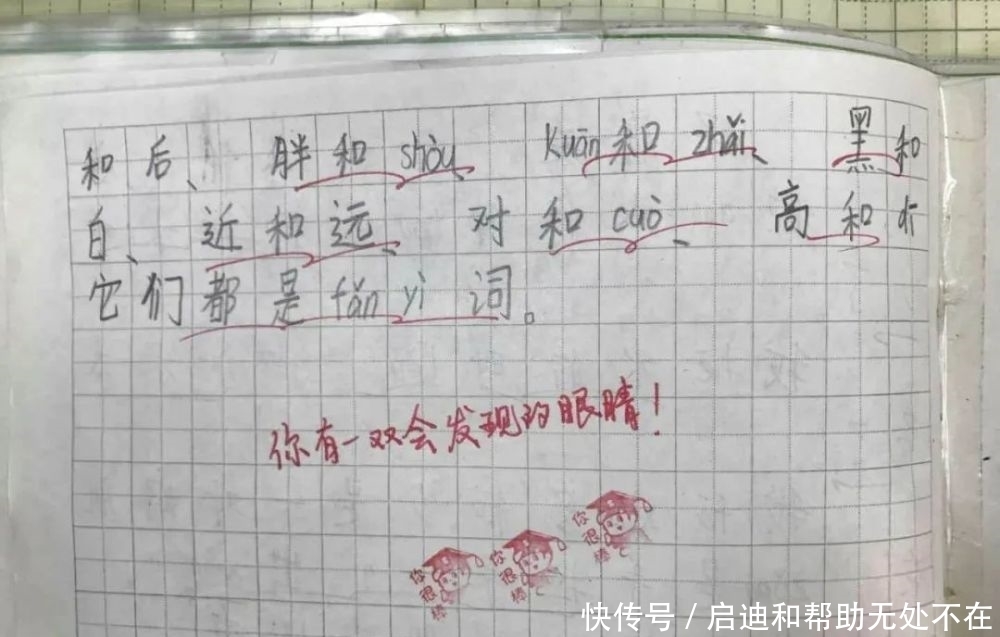 和后、胖和shòu、kuān和zhǎi、黑和
白、近和远、对和cuò、高和
它们都是fǎn yì词。
你有一双会发现的眼睛！
你很棒
你很棒
你很棒
快传号 / 启迪和帮助无处不在